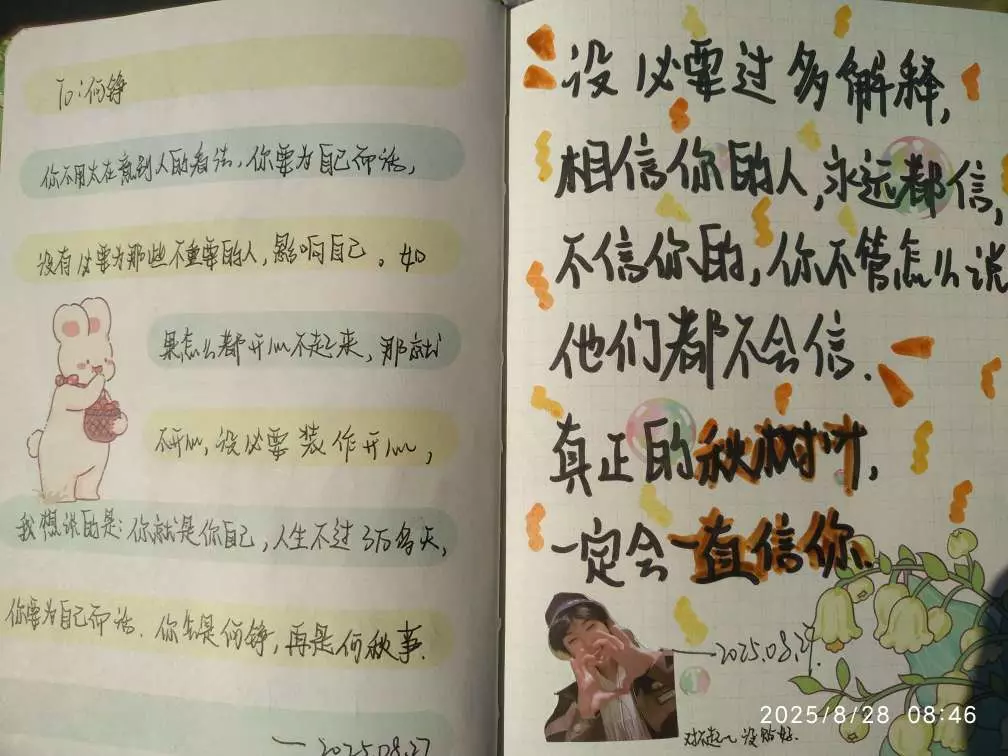 To:何铮
你不用太在意别人的看法,你要为自己而活,
没有必要为那些不重要的人,影响自己。如
果怎么都开心不起来,那就
不开心,没必要装作开心,
我想说的是:你就是你自己,人生不过3万多天,
你要为自己而活.你先是何铮,再是何秋事.
— 2025.08.27
没必要过多解释,
相信你的人,永远都信,
不信你的,你不管怎么说
他们都不会信.
真正的秋树叶,
一定会一直信你.
—2025.08.27.
对不起~没贴好.
2025/8/28 08:46